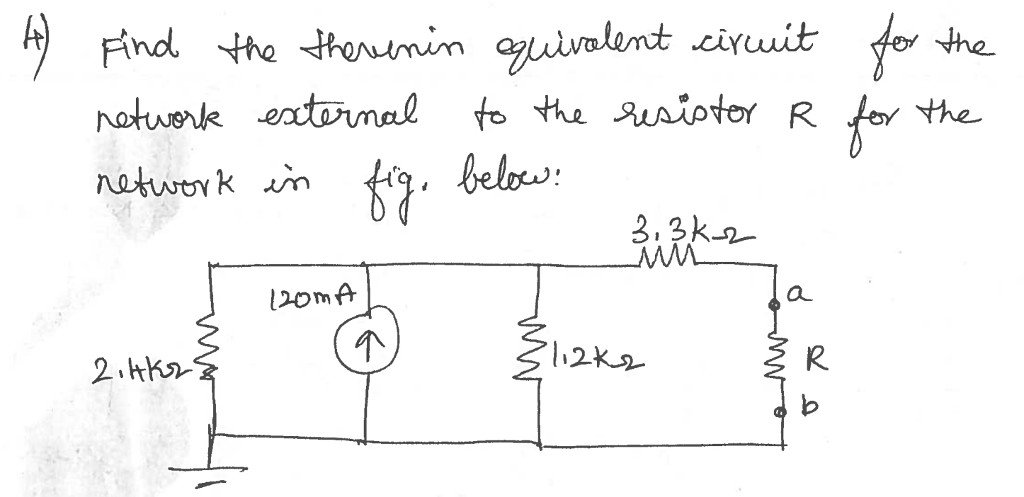 4) Find the thevenin equivalent circuit for the
network external to the resistor R for the
network in fig. below:
3.3kΩ
120mA
a
2.4kΩ
1.2kΩ
R
b